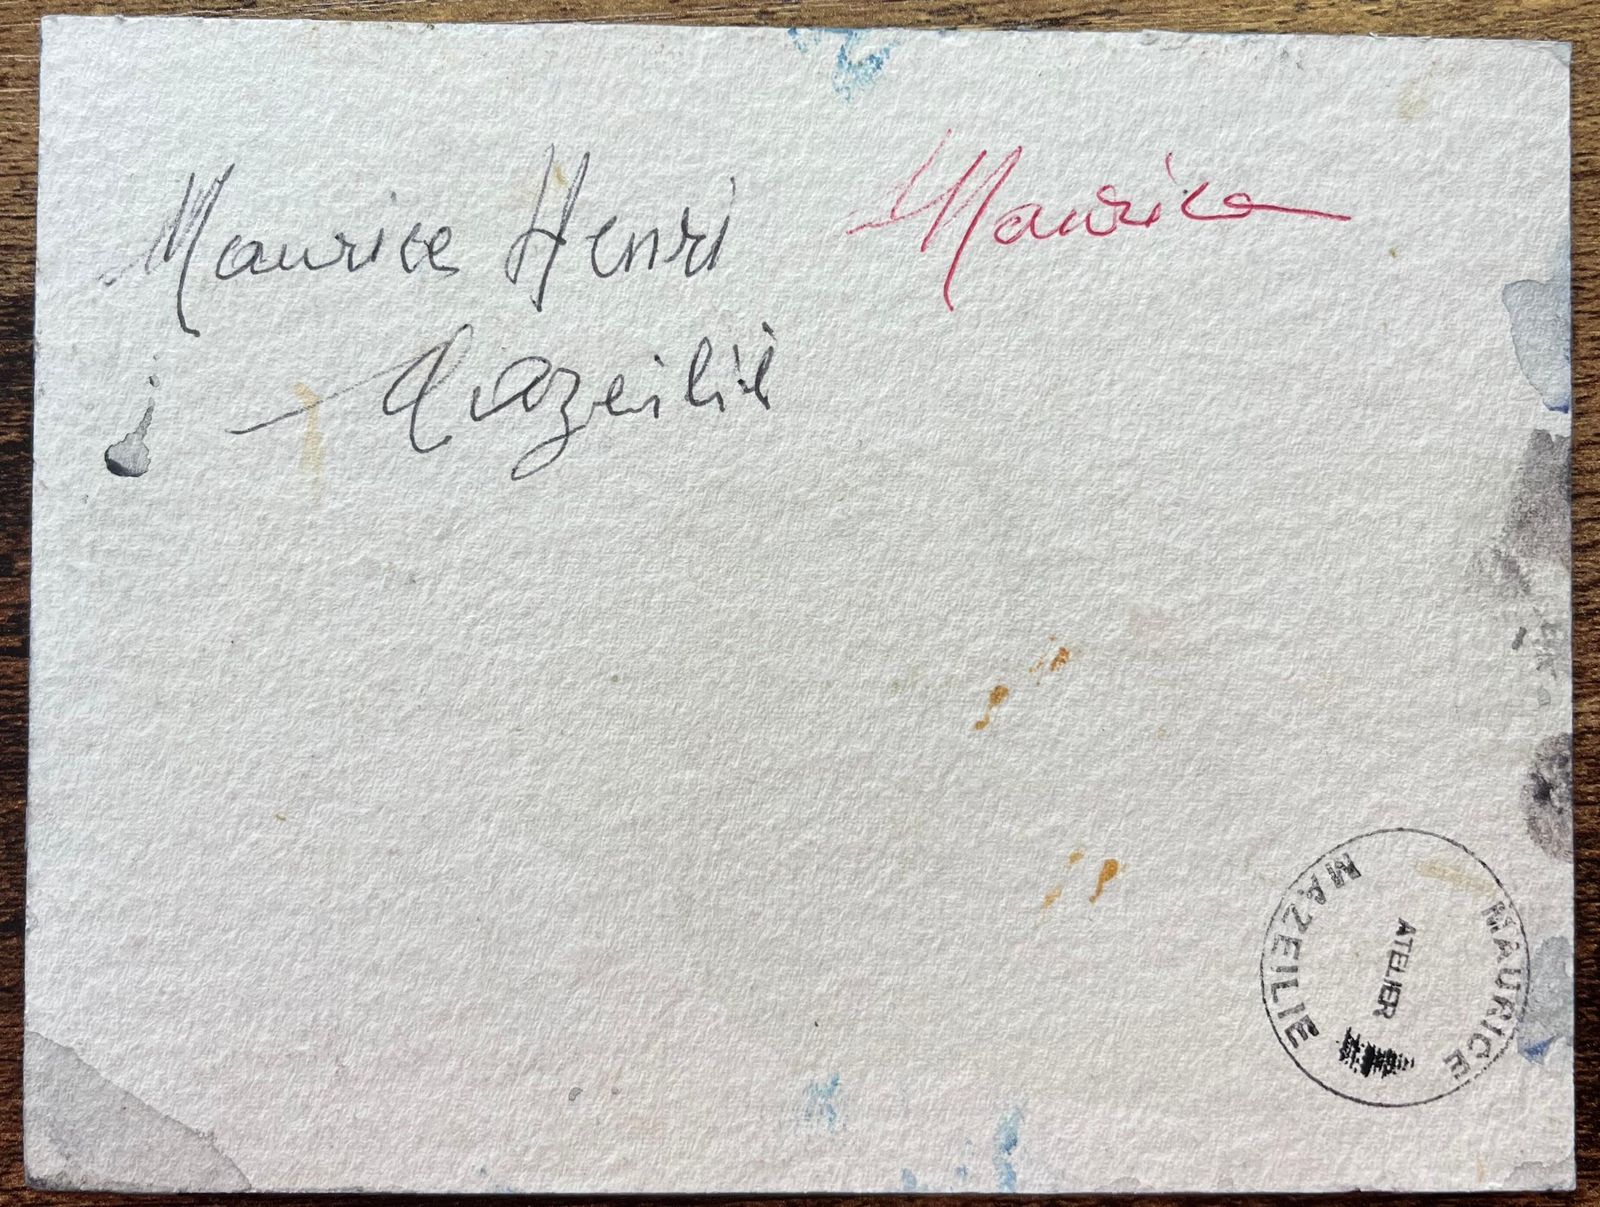 Maurice Henri
Maurice
Mazeilie
MAURICE
MAZEILIE
ATELIER